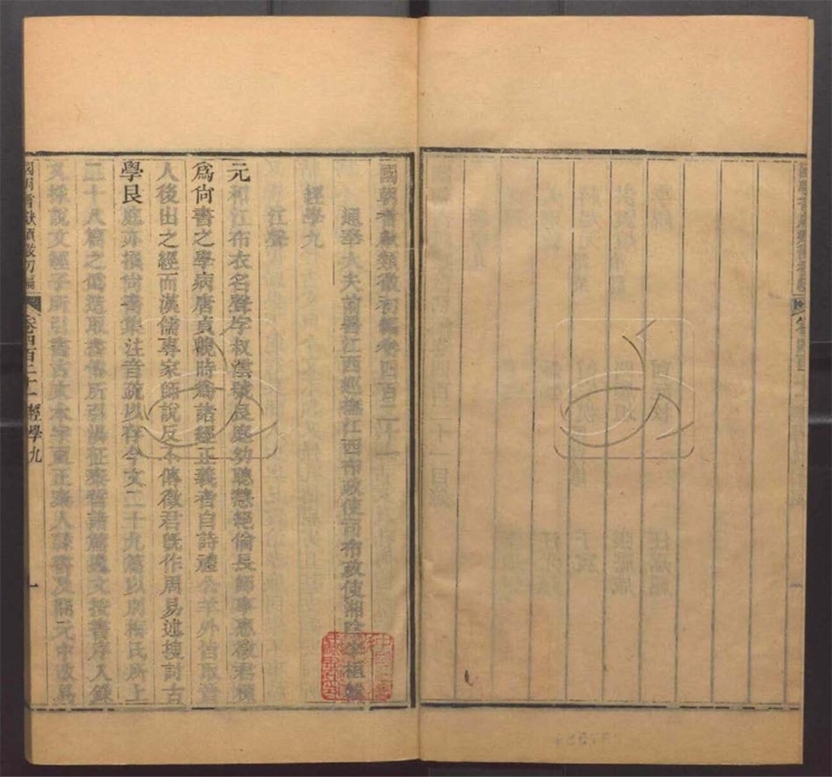 國朝耆獻類徵初編卷四百二十一
通奉大夫前署江西巡撫江西布政使司布政使湘陰李桓輯
經學九
江聲
元和江布衣名聲字叔澐號艮庭幼聰慧絕倫長師事惠徵君棟
為尚書之學病唐貞觀時為諸經正義者自詩禮公羊外皆取晉
人後出之經而漢儒專家師說反不傳徵君既作周易述搜討古
學艮庭亦撰尚書集注音疏以存今文二十九篇以別梅氏所上
二十八篇之偽造取書傳所引湯征泰誓諸篇逸文按書序入錄
又採說文經子所引書古文本字更正秦人隸書及開元中改易
國朝耆獻類徵初編 卷四百二十一 經學九 一